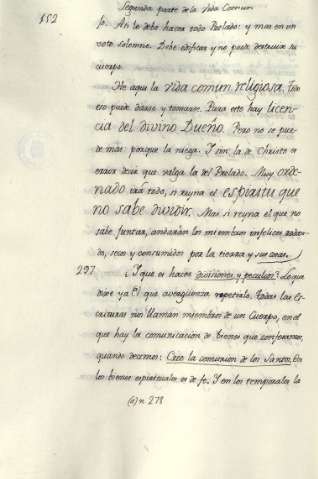 152
Segunda parte de la Vida Comun
se. Así debe hacer todo Prelado: y mas en un
voto solemne. Debe edificar y no puede destruir su
cuerpo.
He aqui la vida comun religiosa.
ero puede darse y tomarse. Para esto hay licen-
cia del divino Dueño. Pero no se pue-
de mas porque la niega. Y sin la de Christo es
ocioso decir que valga la del Prelado. Muy orde-
nado irá todo, si reyna el espiritu que
no sabe dividir. Mas si reyna el que no
sabe juntar, andarán los miembros infelices
secos y consumidos por la tierra y sus
297. ¿Y que es hacer divisiones y peculios? Lo que
dixe ya el que averguenza repetirlo. Todas las Es-
crituras nos llaman miembros de un Cuerpo, en el
que hay la comunicacion de bienes que confesamos,
quando decimos: Creo la comunion de los Santos. En
los bienes espirituales es de fe. Y en los temporales la
(a) n. 278